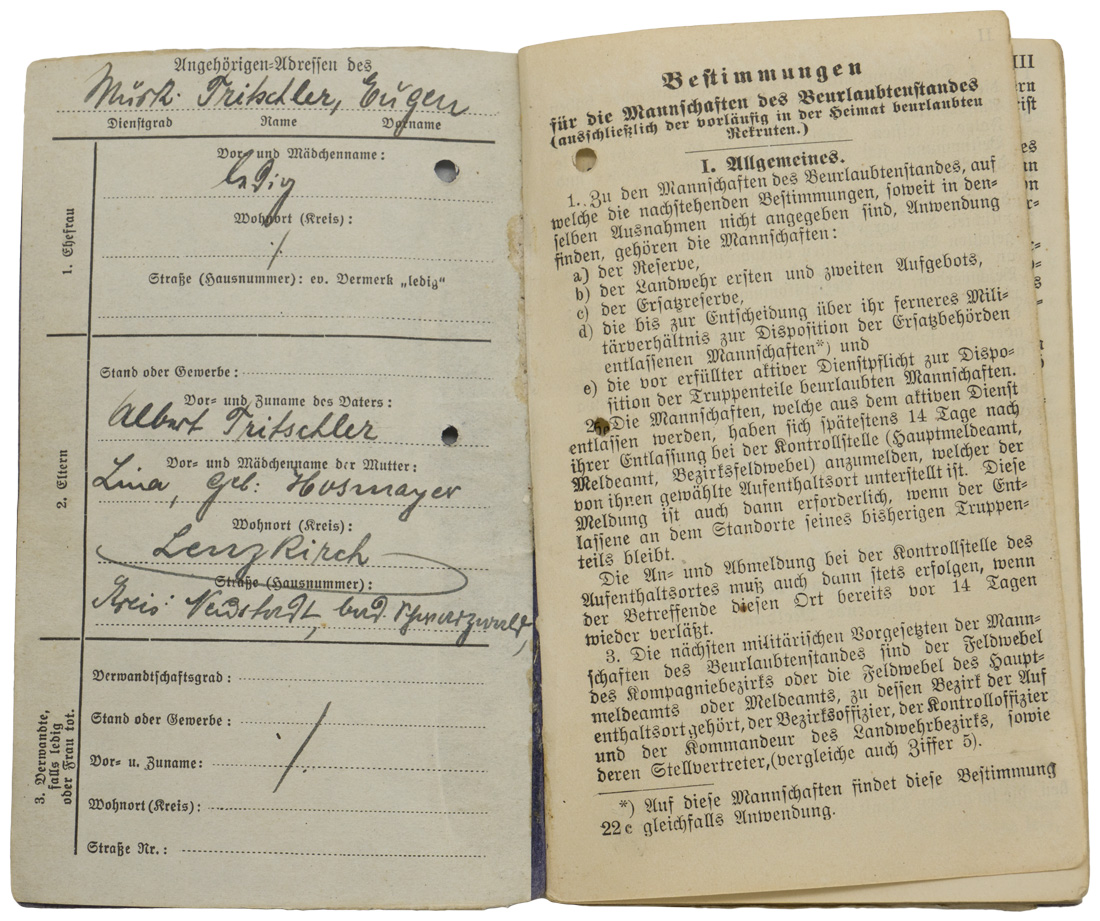 Angehörigen-Adressen des
Musk. Tritschler, Eugen
Dienstgrad Name Vorname
1. Ehefrau
Vor- und Mädchenname:
ledig
Wohnort (Kreis):
Straße (Hausnummer): ev. Vermerk „ledig“
2. Eltern
Stand oder Gewerbe:
Vor- und Zuname des Vaters:
Albert Tritschler
Vor- und Mädchenname der Mutter:
Lina, geb: Hosmayer
Wohnort (Kreis):
Lenzkirch
Straße (Hausnummer):
Kreis: Neustadt, bad. Schwarzwald,
3. Verwandte,
falls ledig
oder Frau tot.
Verwandtschaftsgrad:
Stand oder Gewerbe:
Vor- u. Zuname:
Wohnort (Kreis):
Straße Nr.:
Bestimmungen
für die Mannschaften des Beurlaubtenstandes
(ausschließlich der vorläufig in der Heimat beurlaubten
Rekruten.)
I. Allgemeines.
1. Zu den Mannschaften des Beurlaubtenstandes, auf
welche die nachstehenden Bestimmungen, soweit in den-
selben Ausnahmen nicht angegeben sind, Anwendung
finden, gehören die Mannschaften:
a) der Reserve,
b) der Landwehr ersten und zweiten Aufgebots,
c) der Ersatzreserve,
d) die bis zur Entscheidung über ihr ferneres Mili-
tärverhältnis zur Disposition der Ersatzbehörden
entlassenen Mannschaften*) und
e) die vor erfüllter aktiver Dienstpflicht zur Dispo-
sition der Truppenteile beurlaubten Mannschaften.
2. Die Mannschaften, welche aus dem aktiven Dienst
entlassen werden, haben sich spätestens 14 Tage nach
ihrer Entlassung bei der Kontrollstelle (Hauptmeldeamt,
Meldeamt, Bezirksfeldwebel) anzumelden, welcher der
von ihnen gewählte Aufenthaltsort unterstellt ist. Diese
Meldung ist auch dann erforderlich, wenn der Ent-
lassene an dem Standorte seines bisherigen Truppen-
teils bleibt.
Die An- und Abmeldung bei der Kontrollstelle des
Aufenthaltsortes muß auch dann stets erfolgen, wenn
der Betreffende diesen Ort bereits vor 14 Tagen
wieder verläßt.
3. Die nächsten militärischen Vorgesetzten der Mann-
schaften des Beurlaubtenstandes sind der Feldwebel
des Kompagniebezirks oder die Feldwebel des Haupt-
meldeamts oder Meldeamts, zu dessen Bezirk der Auf
enthaltsort gehört, der Bezirksoffizier, der Kontrolloffizier
und der Kommandeur des Landwehrbezirks, sowie
deren Stellvertreter, (vergleiche auch Ziffer 5).
*) Auf diese Mannschaften findet diese Bestimmung
22 c gleichfalls Anwendung.
III